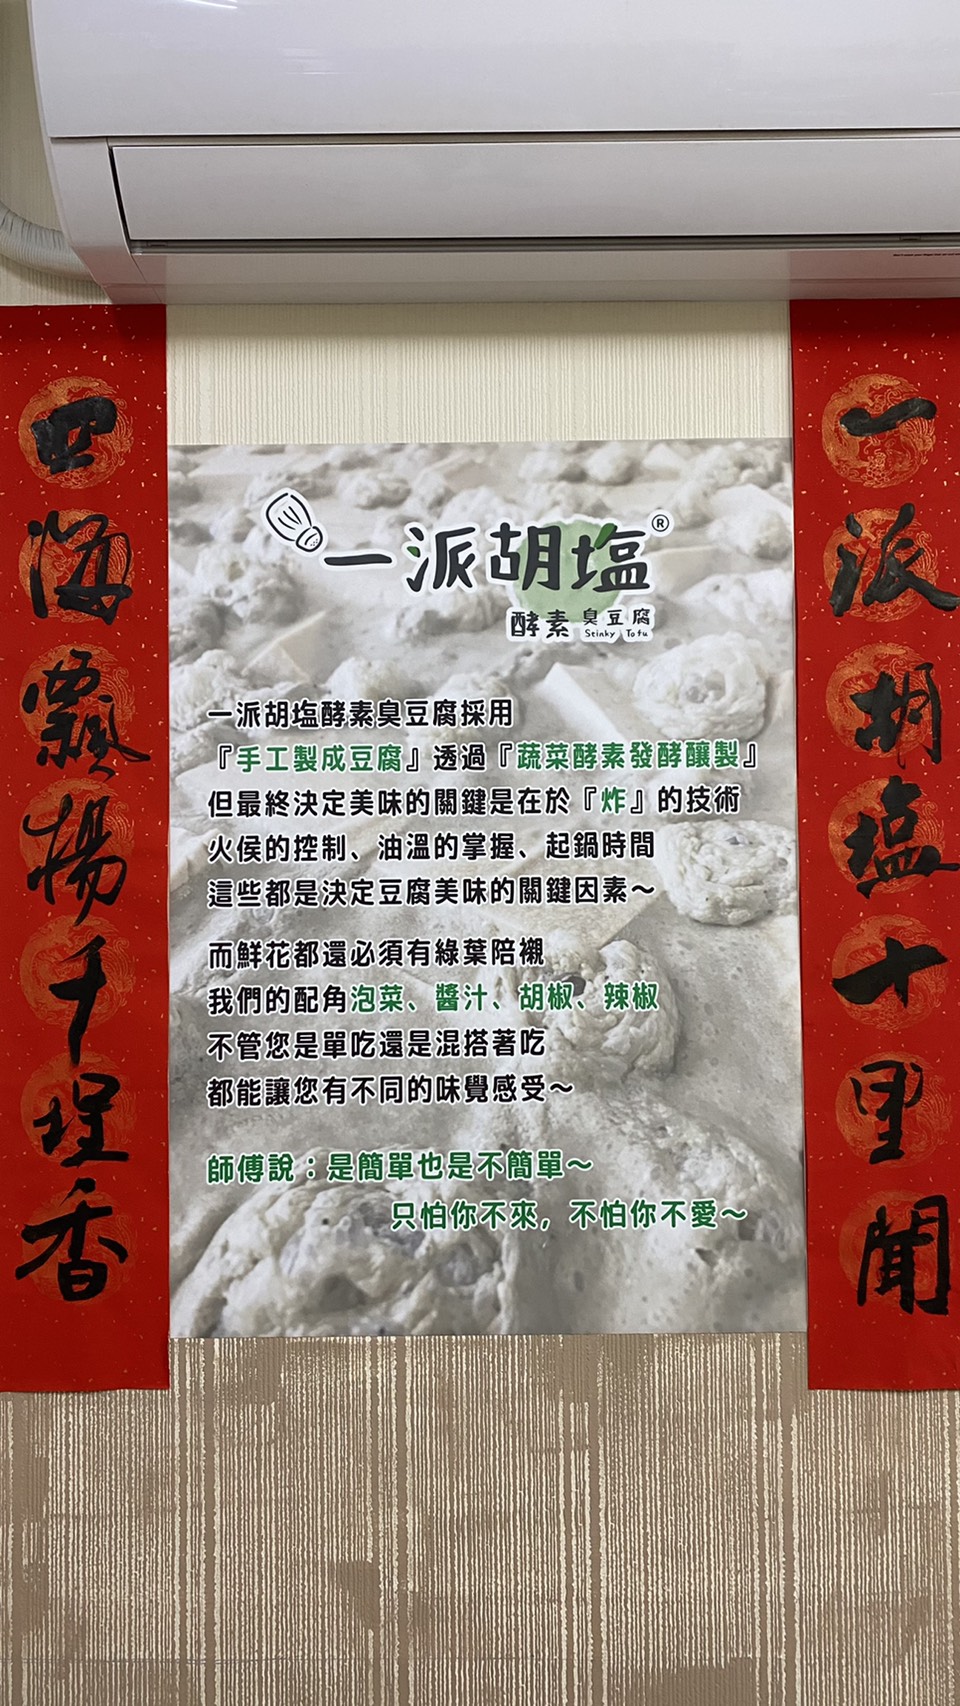 一派胡塩十里聞
一派胡塩®
酵素 臭豆腐
Stinky Tofu
一派胡塩酵素臭豆腐採用
『手工製成豆腐』透過『蔬菜酵素發酵釀製』
但最終決定美味的關鍵是在於『炸』的技術
火侯的控制、油溫的掌握、起鍋時間
這些都是決定豆腐美味的關鍵因素～
而鮮花都還必須有綠葉陪襯
我們的配角泡菜、醬汁、胡椒、辣椒
不管您是單吃還是混搭著吃
都能讓您有不同的味覺感受～
師傅說：是簡單也是不簡單～
只怕你不來，不怕你不愛～
四海飄揚千埕香